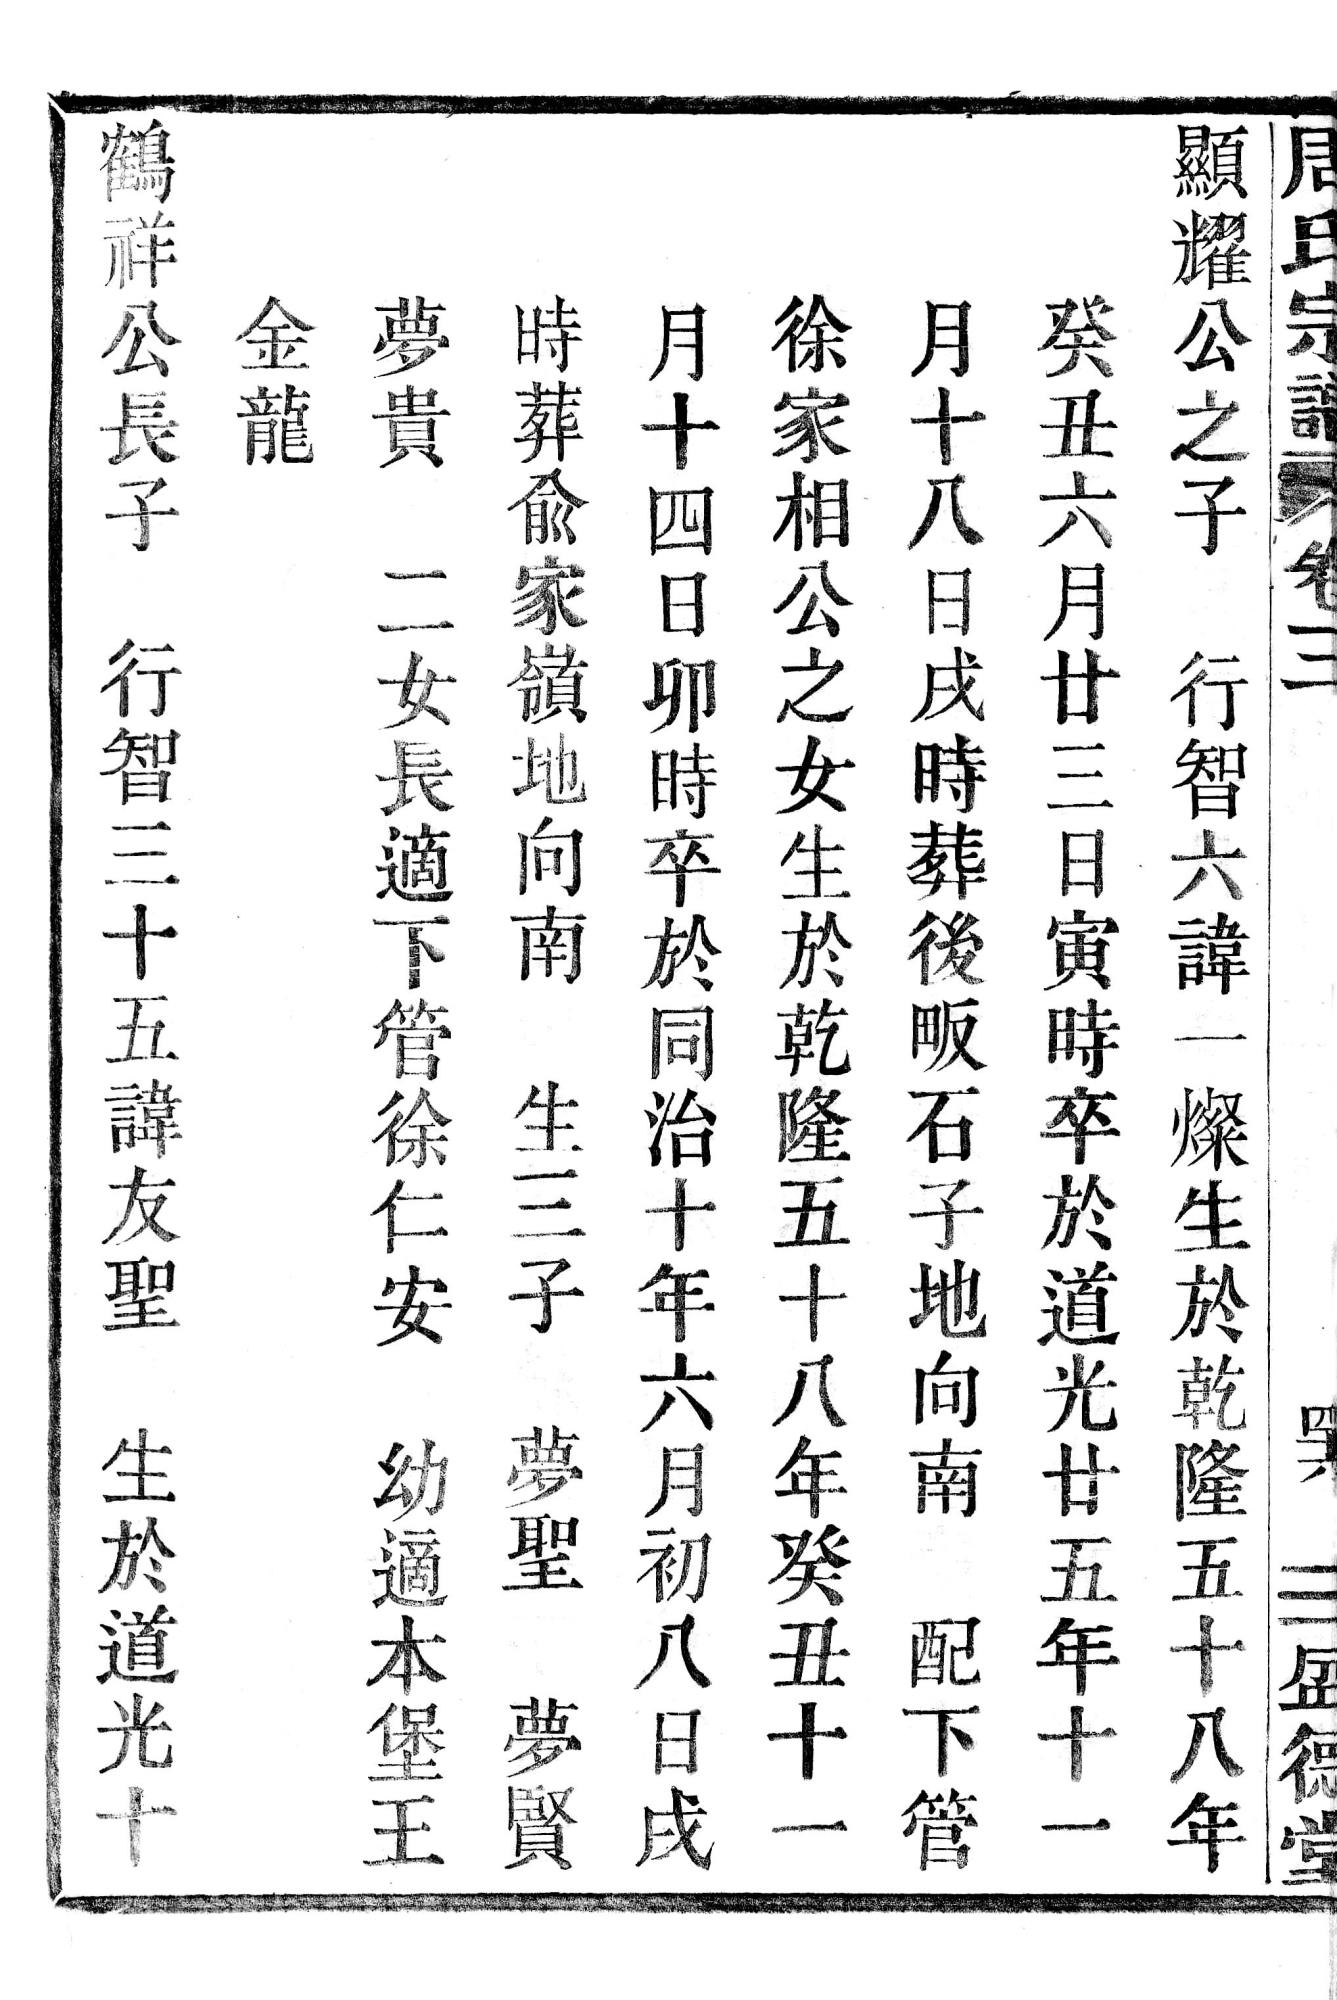 周氏宗譜 卷三 四六 三盈德堂
顯耀公之子 行智六諱一燦生於乾隆五十八年
癸丑六月廿三日寅時卒於道光廿五年十一
月十八日戌時葬後畈石子地向南 配下管
徐家相公之女生於乾隆五十八年癸丑十一
月十四日卯時卒於同治十年六月初八日戌
時葬俞家嶺地向南 生三子 夢聖 夢賢
夢貴 二女長適下管徐仁安 幼適本堡王
金龍
鶴祥公長子 行智三十五諱友聖 生於道光十